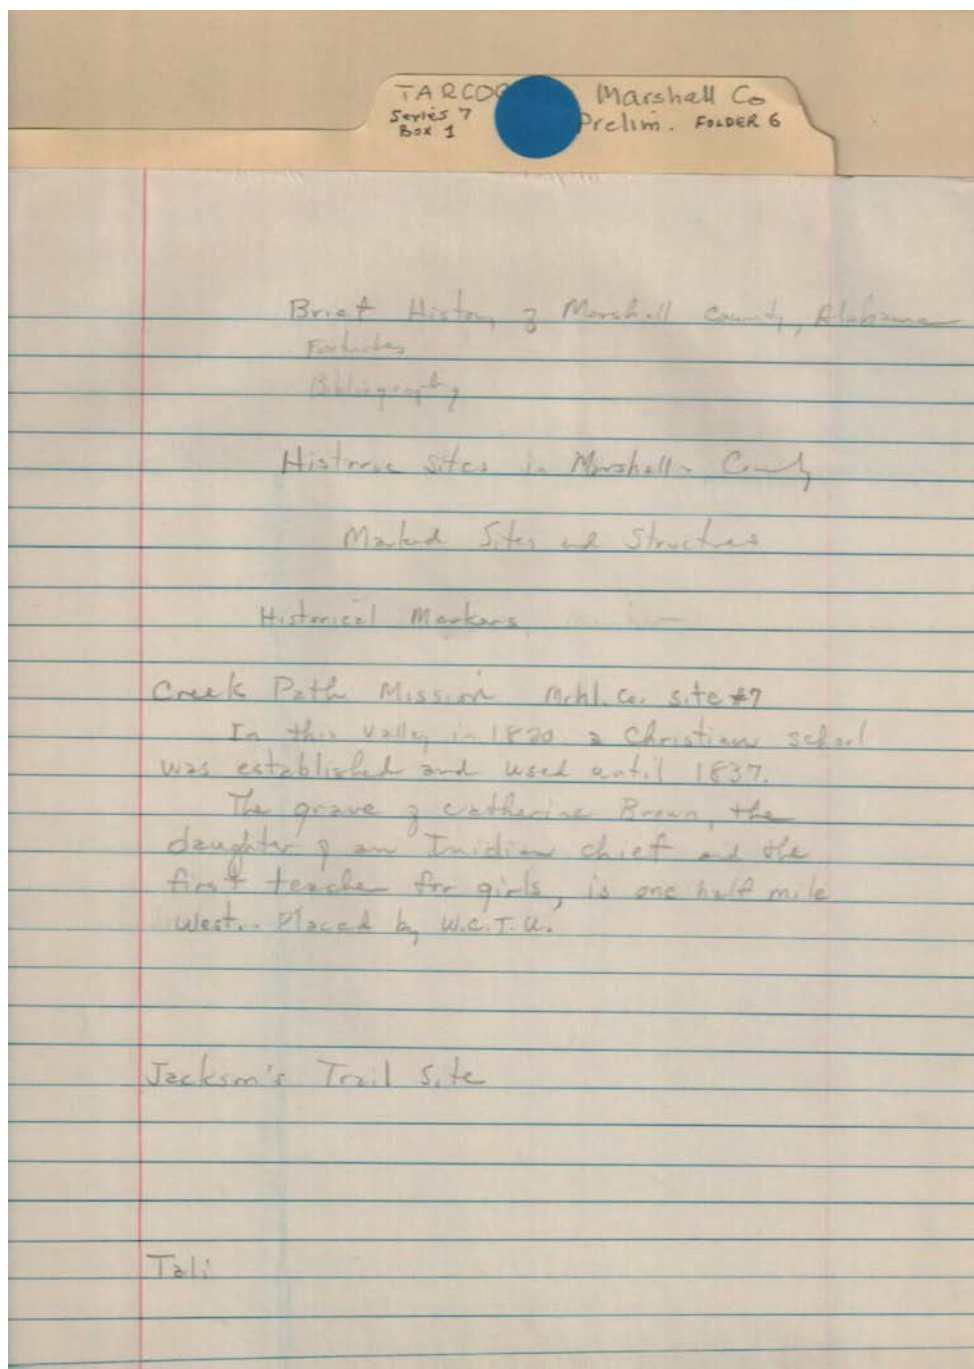 TARCOG Marshall Co
Series 7 Prelim. FOLDER 6
Box 1
Brief History of Marshall County, Alabama
Footnotes
Bibliography
Historic Sites in Marshall County
Marked Sites and Structures
Historical Markers
Creek Path Mission Mrhl. Co. site #7
In this valley in 1820 a Christian school
was established and used until 1837.
The grave of Catherine Brown, the
daughter of an Inidian chief and the
first teacher for girls, is one half mile
west.. Placed by W.C.T.U.
Jackson's Trail Site
Tali